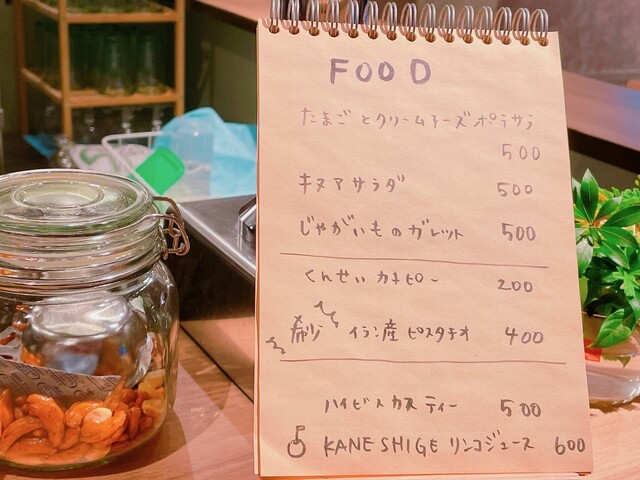 FOOD
たまごとクリームチーズポテサラ
500
キヌアサラダ 500
じゃがいものガレット 500
くんせいカキピー 200
希少 イラン産ピスタチオ 400
ハイビスカスティー 500
KANESHIGE リンゴジュース 600